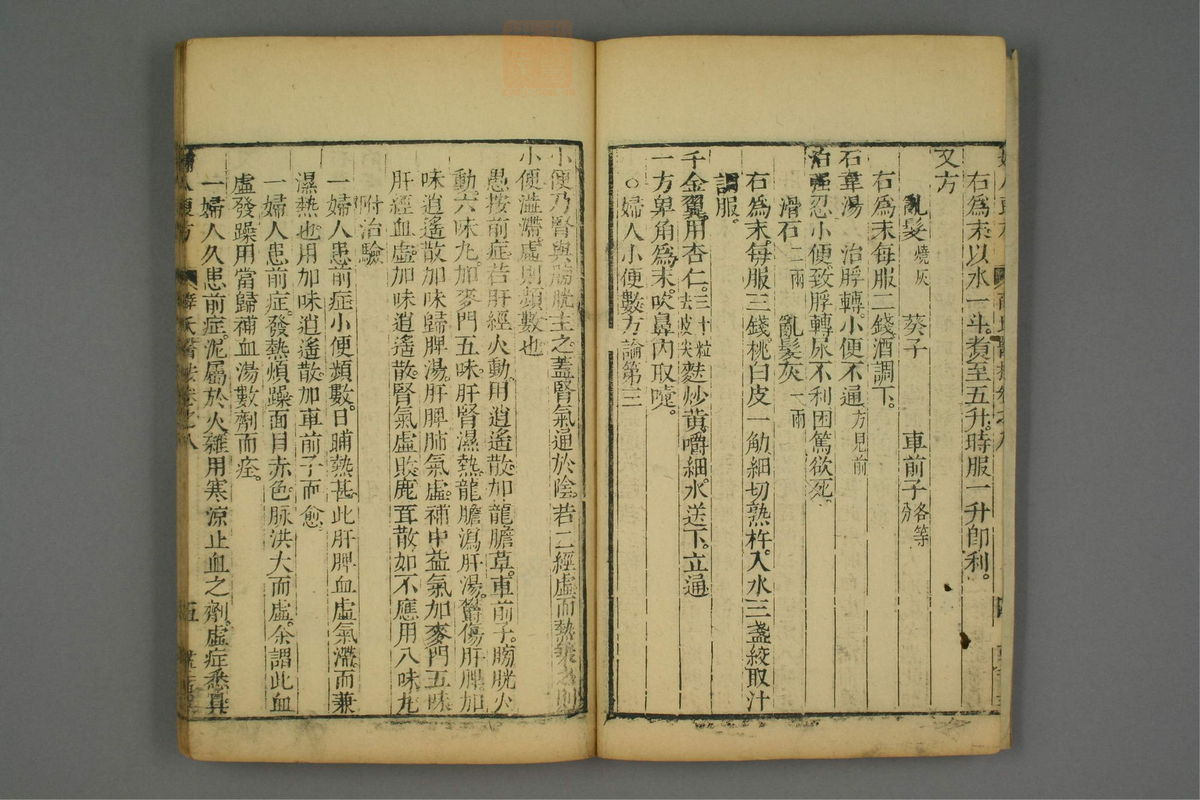 右爲末以水一斗。煑至五升。時服一升卽利。
又方
亂髮燒灰 葵子 車前子各等分
右爲末每服二錢酒調下。
石韋湯 治脬轉小便不通方見前
治强忍小便致脬轉尿不利困篤欲死。
滑石二兩 亂髮灰一兩
右爲末每服三錢桃白皮一觔細切熟杵。入水三盞絞取汁
調服。
千金翼用杏仁。三十粒去皮尖麩炒黄嚼細。水送下。立通
一方皁角爲末。吹鼻內取嚔。
○婦人小便數方論第三
小便乃腎與膀胱主之。蓋腎氣通於陰。若二經虛而熱乘之則
小便澁滯。虛則頻數也
愚按前症若肝經火動。用逍遙散加龍膽草。車前子。膀胱火
動。六味丸加麥門五味。肝腎濕熱。龍膽瀉肝湯。鬱傷肝脾加
味逍遙散加味歸脾湯。肝脾肺氣虛。補中益氣加麥門五味
肝經血虛加味逍遙散。腎氣虛敗。鹿茸散如不應用八味丸
附治驗
一婦人患前症小便頻數。日晡熱甚此肝脾血虛氣滯而兼
濕熱也。用加味逍遙散加車前子而愈。
一婦人患前症。發熱煩躁面目赤色。脉洪大而虛。余謂此血
虛發躁。用當歸補血湯數劑而痊。
一婦人久患前症。泥屬於火。雜用寒涼止血之劑。虛症悉具
婦人良方 薛氏醫按卷之八 五